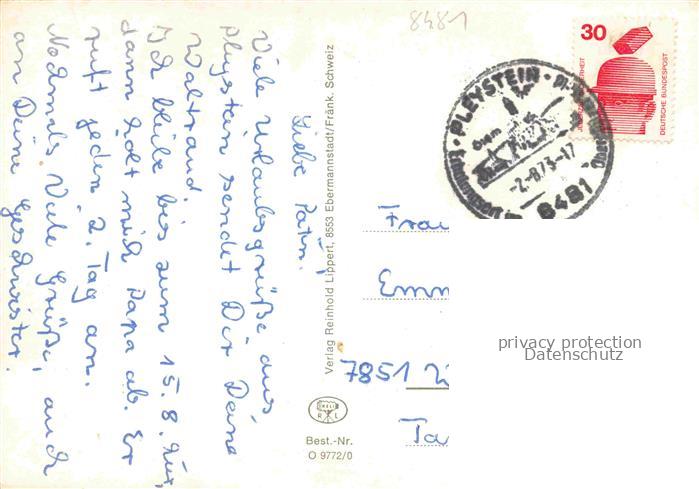 8481
Liebe Patin!
Viele Urlaubsgrüße aus,
Pleystein sendet Dir Deine
Waltraud.
Ich bleibe bis zum 15.8. hier,
dann holt mich Papa ab. Er
ruft jeden 2. Tag an.
Nochmals Viele Grüße, auch
an Deine Geschwister.
Verlag Reinhold Lippert, 8553 Ebermannstadt/Fränk. Schweiz
RELI
R L
Best.-Nr.
O 9772/0
30
DEUTSCHE BUNDESPOST
PLEYSTEIN
-2.-8.73-17
8481
Frau
Emm
7851
Ta
privacy protection
Datenschutz